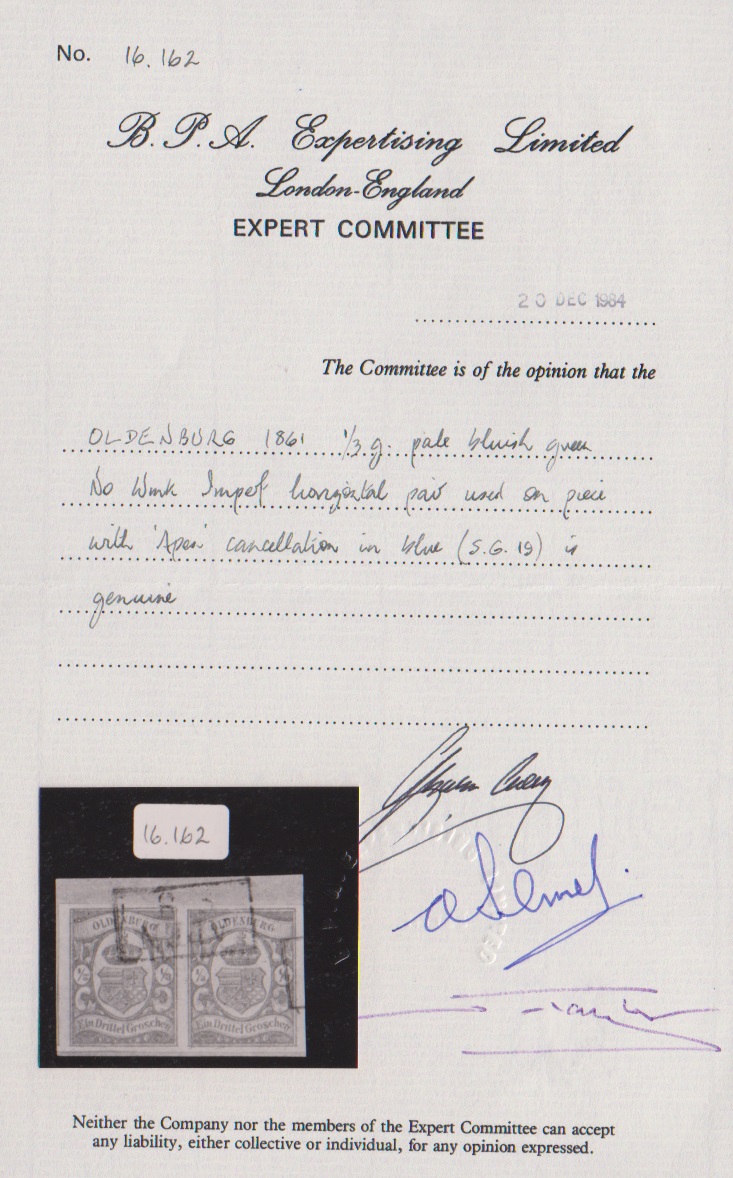 No. 16.162
B. P. A. Expertising Limited
London-England
EXPERT COMMITTEE
20 DEC 1984
The Committee is of the opinion that the
OLDENBURG 1861 1/3 g. pale bluish green
No Wmk Imperf horizontal pair used on piece
with 'Apen' cancellation in blue (S.G. 19) is
genuine
16.162
OLDENBURG OLDENBURG
1/3 1/3
Ein Drittel Groschen Ein Drittel Groschen
Neither the Company nor the members of the Expert Committee can accept
any liability, either collective or individual, for any opinion expressed.